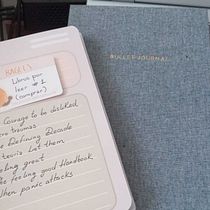 BAGELS
Libros por
leer #1
(comprar)
Courage to be disliked
traumas
Defining Decade
Let them
feeling great
feeling good Handbook
When panic attacks
BULLET JOURNAL